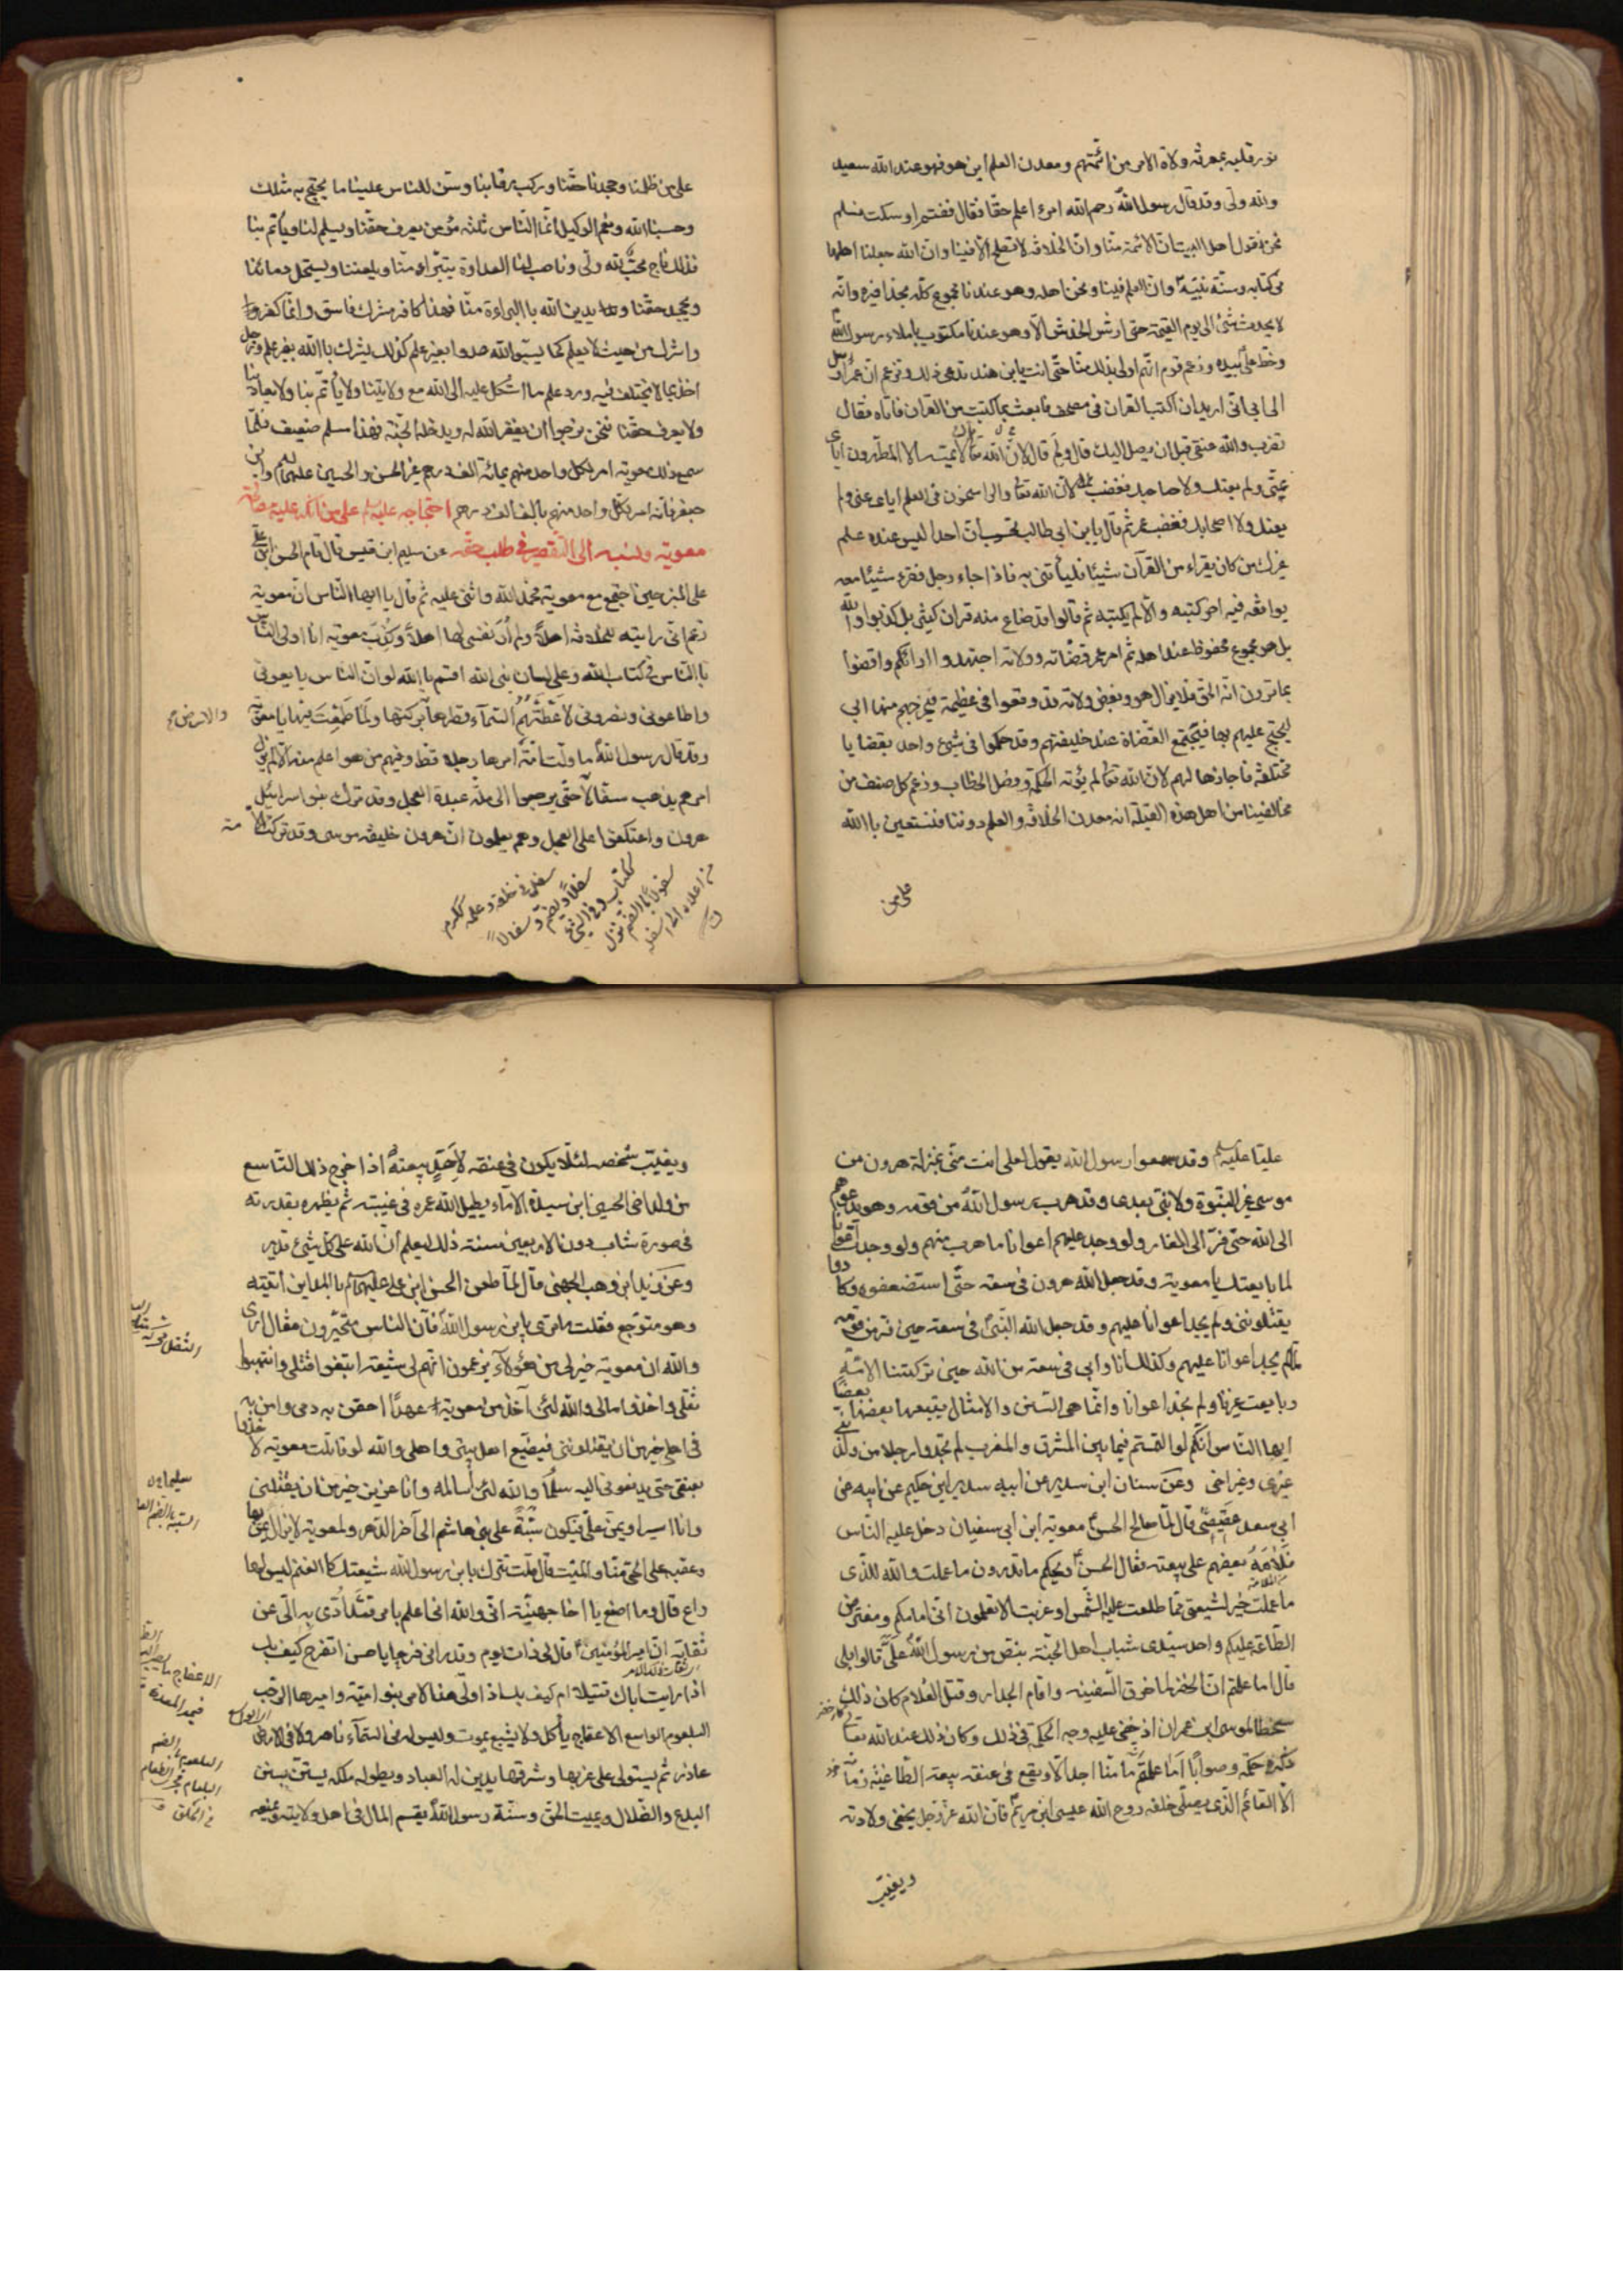 نور قلبه بمعرفة ولاة الامر من ائمتهم ومعدن العلم اين هو فهو عند الله سعيد
ولله ولى وقد قال رسول الله رحم الله امرءا علم حقا فقال فغنم او سكت فسلم
نحن نقول اهل البيت ان الائمة منا وان الخلافة لا تصلح الا فينا وان الله جعلنا اهلها
فى كتابه وسنة نبيه وان العلم فينا ونحن اهله وهو عندنا مجموع كله بحذافيره وانه
لا يحدث شئ الى يوم القيمة حتى ارش الخدش الا وهو عندنا مكتوب باملاء رسول الله
وخط على بيده وزعم قوم انهم اولى بذلك منا حتى انت يابن هند تدعى ذلك وتزعم ان عمر ارسل
الى ابى انى اريد ان اكتب القران فى مصحف فابعث بما كتبت من القران فاتاه فقال
تضرب والله عنقى قبل ان يصل اليك قال ولم قال لان الله تعالى قال لا يمسه الا المطهرون اياى
عنى ولم يعنك ولا اصحابك فغضب عمر لان الله تعالى والراسخون فى العلم اياى عنى ولم
يعنك ولا اصحابك فغضب عمر ثم قال يا ابن ابى طالب تحسب ان احدا ليس عنده علم
غيرك من كان يقراء من القرآن شيئا فلياتنى به فاذا جاء رجل فقرء شيئا معه
يوافقه فيه اخر كتبه والا لم يكتبه ثم قالوا قد ضاع منه قران كثير بل كذبوا والله
بل هو مجموع محفوظ عند اهله ثم امر عمر قضاته وولاته اجتهدوا ارائكم واقضوا
بما ترون انه الحق فلا يزال هو وبعض ولاته قد وقعوا فى عظيمة فيخرجهم منها ابى
ليحتج عليهم بها فيجتمع القضاة عند خليفتهم وقد حكموا فى شئ واحد بقضايا
مختلفة فاجازها لهم لان الله تعالى لم يؤته الحكمة وفصل الخطاب وزعم كل صنف من
مخالفينا من اهل هذه القبلة انه معدن الخلافة والعلم دوننا فنستعين بالله
على من
على من ظلمنا وجحدنا حقنا وركب رقابنا وسن للناس علينا ما يحتج به مثلك
وحسبنا الله ونعم الوكيل انما الناس ثلثة مؤمن يعرف حقنا ويسلم لنا وياتم بنا
فذلك ناج محب لله ولى وناصب لنا العداوة يتبرا منا ويلعننا ويستحل دمائنا
ويجحد حقنا ويدين الله بالبراءة منا فهذا كافر مشرك فاسق وانما كفر
واشرك من حيث لا يعلم كما يسبوا الله عدوا بغير علم كذلك يشرك بالله بغير علم ورجل
اخذ بما لا يختلف فيه ورد علم ما اشكل عليه الى الله مع ولايتنا ولا ياتم بنا ولا يعادينا
ولا يعرف حقنا فنحن نرجوا ان يغفر الله له ويدخله الجنة فهذا مسلم ضعيف فلما
سمع ذلك معوية امر لكل واحد منهم بمائة الف درهم غير الحسن والحسين عليهما السلم وابن
جعفر فانه امر لكل واحد منهم بالف الف درهم احتجاجه عليه السلم على من انكر عليه مصالحة
معوية ونسبه الى التقصير فى طلب حقه عن سليم ابن قيس قال قام الحسن ابن على
على المنبر حين اجتمع مع معوية فحمد الله واثنى عليه ثم قال يا ايها الناس ان معوية
زعم انى رايته للخلافة اهلا ولم ار نفسى لها اهلا وكذب معوية انا اولى الناس
بالناس فى كتاب الله وعلى لسان نبى الله اقسم بالله لو ان الناس بايعونى
واطاعونى ونصرونى لاعطتهم السماء قطرها والارض بركتها ولما طمعت فيها يا معوية
وقد قال رسول الله ما ولت امة امرها رجلا قط وفيهم من هو اعلم منه الا لم يزل
امرهم يذهب سفالا حتى يرجعوا الى ملة عبدة العجل وقد ترك بنو اسرائيل
هرون واعتكفوا على العجل وهم يعلمون ان هرون خليفة موسى وقد تركت الامة
عليا عليه السلم وقد سمعوا رسول الله يقول لعلى انت منى بمنزلة هرون من
موسى غير النبوة ولا نبى بعدى وقد هرب رسول الله من قومه وهو يدعوهم
الى الله حتى فر الى الغار ولو وجد عليهم اعوانا ما هرب منهم ولو وجدت اعوانا
لما بايعتك يا معوية وقد جعل الله هرون فى سعة حتى استضعفوه وكادوا
يقتلونى ولم يجد اعوانا عليهم وقد جعل الله النبى فى سعة حين فر من قومه
لما لم يجد اعوانا عليهم وكذلك انا وابى فى سعة من الله حين تركتنا الامة
وبايعت غيرنا ولم نجد اعوانا وانما هى السنن والامثال يتبع بعضها بعضا
ايها الناس انكم لو التمستم فيما بين المشرق والمغرب لم تجدوا رجلا من ولد نبى
غيرى وغير اخى وعن سنان ابن سدير عن ابيه سدير ابن حكيم عن ابيه عن
ابى سعد عقيصى قال لما صالح الحسن معوية ابن ابى سفيان دخل عليه الناس
فلامه بعضهم على بيعته فقال الحسن ويحكم ما تدرون ما عملت والله للذى
ما عملت خير لشيعتى مما طلعت عليه الشمس او غربت الا تعلمون انى امامكم ومفترض
الطاعة عليكم واحد سيدى شباب اهل الجنة بنص من رسول الله على قالوا بلى
قال اما علمتم ان الخضر لما خرق السفينة واقام الجدار وقتل الغلام كان ذلك
سخطا لموسى ابن عمران اذ خفى عليه وجه الحكمة فى ذلك وكان ذلك عند الله تعالى
ذكره حكمة وصوابا اما علمتم انه ما منا احد الا ويقع فى عنقه بيعة لطاغية زمانه
الا القائم الذى يصلى خلفه روح الله عيسى ابن مريم فان الله عز وجل يخفى ولادته
ويغيب
ويغيب شخصه لئلا يكون فى عنقه لاحد بيعة اذا خرج ذلك التاسع
من ولد اخى الحسين ابن سيدة الاماء يطيل الله عمره فى غيبته ثم يظهره بقدرته
فى صورة شاب دون الاربعين سنة ذلك ليعلم ان الله على كل شئ قدير
وعن زيد ابن وهب الجهنى قال لما طعن الحسن ابن على عليهما السلم بالمداين اتيته
وهو متوجع فقلت ما ترى يا بن رسول الله فان الناس متحيرون فقال ارى
والله ان معوية خير لى من هؤلاء يزعمون انهم لى شيعة ابتغوا قتلى وانتهبوا
ثقلى واخذوا مالى والله لئن آخذ من معوية عهدا احقن به دمى وامن به
فى اهلى خير من ان يقتلونى فيضيع اهل بيتى واهلى والله لو قاتلت معوية لاخذوا
بعنقى حتى يدفعونى اليه سلما والله لئن اسالمه وانا عزيز خير من ان يقتلنى
وانا اسير او يمن على فيكون سبة على بنى هاشم الى آخر الدهر ولمعوية لا يزال يمن بها
وعقبه على الحى منا والميت قال قلت تترك يا بن رسول الله شيعتك كالغنم ليس لها
راع قال وما اصنع يا اخا جهينة انى والله اعلم بامر قد ادى به الى عن
ثقاته ان امير المؤمنين قال لى ذات يوم وقد رانى فرحا يا حسن اتفرح كيف بك
اذا رايت اباك قتيلا ام كيف بك اذا ولى هذا الامر بنو امية واميرها الرحب
البلعوم الواسع الاعفاج ياكل ولا يشبع يموت وليس له فى السماء ناصر ولا فى الارض
عاذر ثم يستولى على غربها وشرقها يدين له العباد ويطول ملكه يستن بسنن
البدع والضلال ويميت الحق وسنة رسول الله يقسم المال فى اهل ولايته ويمنعه